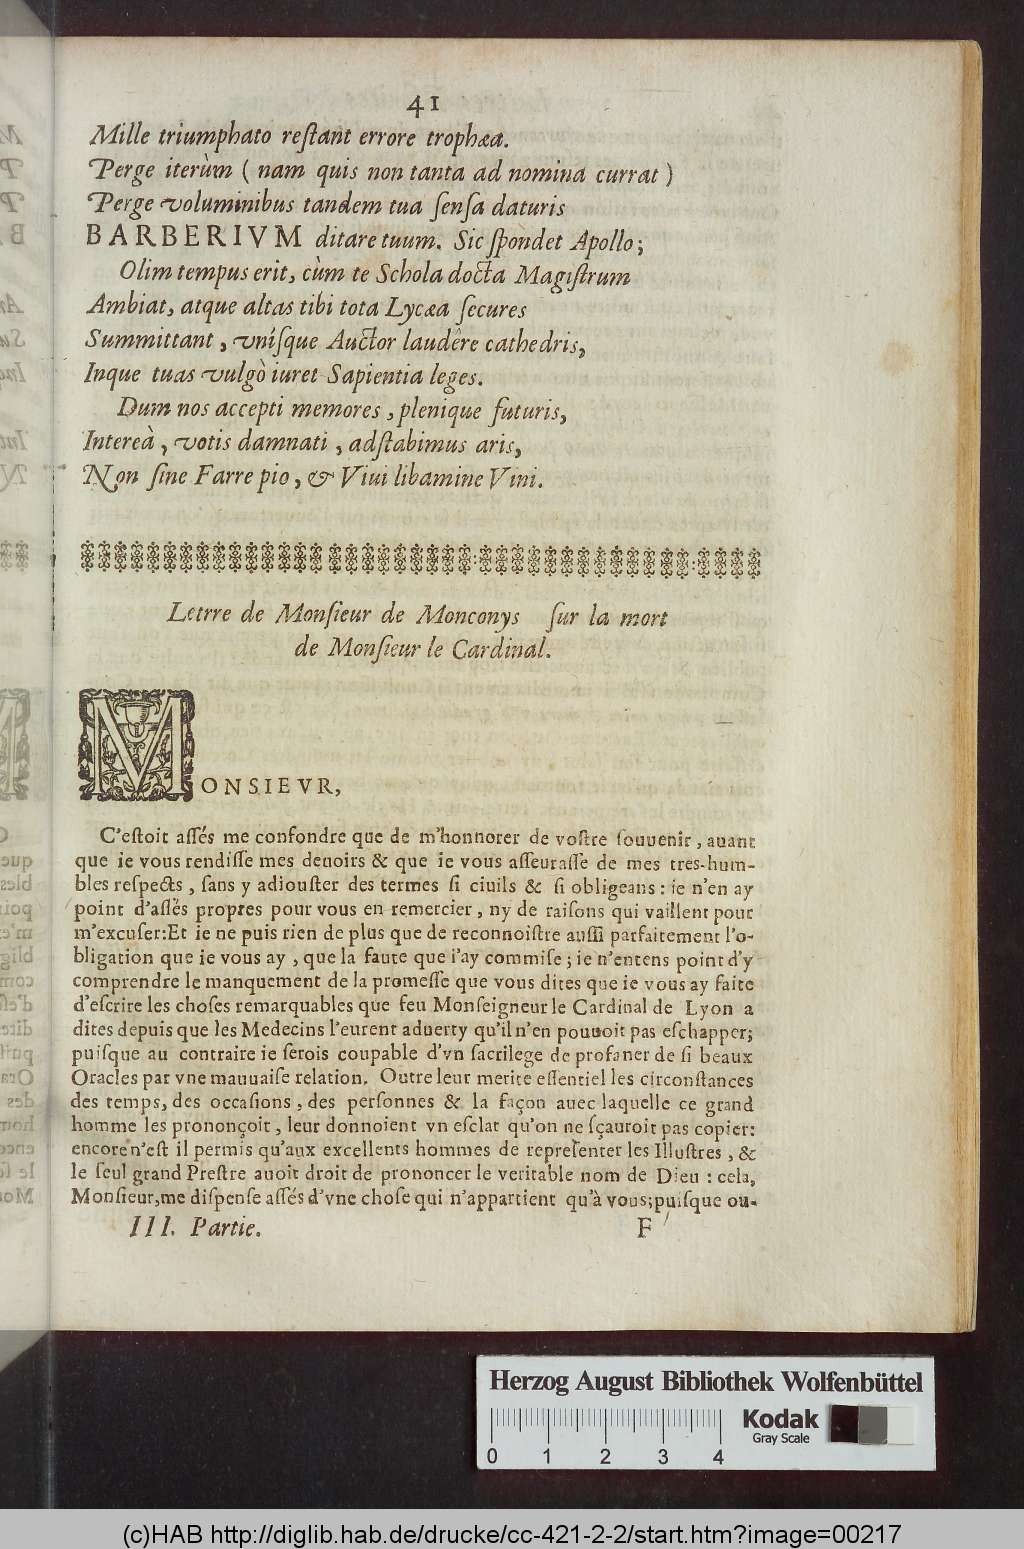 41
Mille triumphato reſtant errore trophæa.
Perge iterùm ( nam quis non tanta ad nomina currat )
Perge voluminibus tandem tua ſenſa daturis
BARBERIVM ditare tuum. Sic ſpondet Apollo;
Olim tempus erit, cùm te Schola docta Magiſtrum
Ambiat, atque altas tibi tota Lycæa ſecures
Summittant, vniſque Auctor laudêre cathedris,
Inque tuas vulgò iuret Sapientia leges.
Dum nos accepti memores, plenique futuris,
Intereà, votis damnati, adſtabimus aris,
Non ſine Farre pio, & Viui libamine Vini.
Letrre de Monſieur de Monconys ſur la mort
de Monſieur le Cardinal.
MONSIEVR,
C'eſtoit aſſés me confondre que de m'honnorer de voſtre ſouuenir, auant
que ie vous rendiſſe mes deuoirs & que ie vous aſſeuraſſe de mes tres-hum-
bles reſpects, ſans y adiouſter des termes ſi ciuils & ſi obligeans: ie n'en ay
point d'aſſés propres pour vous en remercier, ny de raiſons qui vaillent pour
m'excuſer:Et ie ne puis rien de plus que de reconnoiſtre auſſi parfaitement l'o-
bligation que ie vous ay, que la faute que i'ay commiſe; ie n'entens point d'y
comprendre le manquement de la promeſſe que vous dites que ie vous ay faite
d'eſcrire les choſes remarquables que feu Monſeigneur le Cardinal de Lyon a
dites depuis que les Medecins l'eurent aduerty qu'il n'en pouuoit pas eſchapper;
puiſque au contraire ie ſerois coupable d'vn ſacrilege de profaner de ſi beaux
Oracles par vne mauuaiſe relation. Outre leur merite eſſentiel les circonſtances
des temps, des occaſions, des perſonnes & la façon auec laquelle ce grand
homme les prononçoit, leur donnoient vn eſclat qu'on ne ſçauroit pas copier:
encore n'eſt il permis qu'aux excellents hommes de repreſenter les Illuſtres, &
le ſeul grand Preſtre auoit droit de prononcer le veritable nom de Dieu: cela,
Monſieur,me diſpenſe aſſés d'vne choſe qui n'appartient qu'à vous;puiſque ou-
III. Partie. F
Herzog August Bibliothek Wolfenbüttel
Kodak
Gray Scale
0 1 2 3 4
(c)HAB http://diglib.hab.de/drucke/cc-421-2-2/start.htm?image=00217